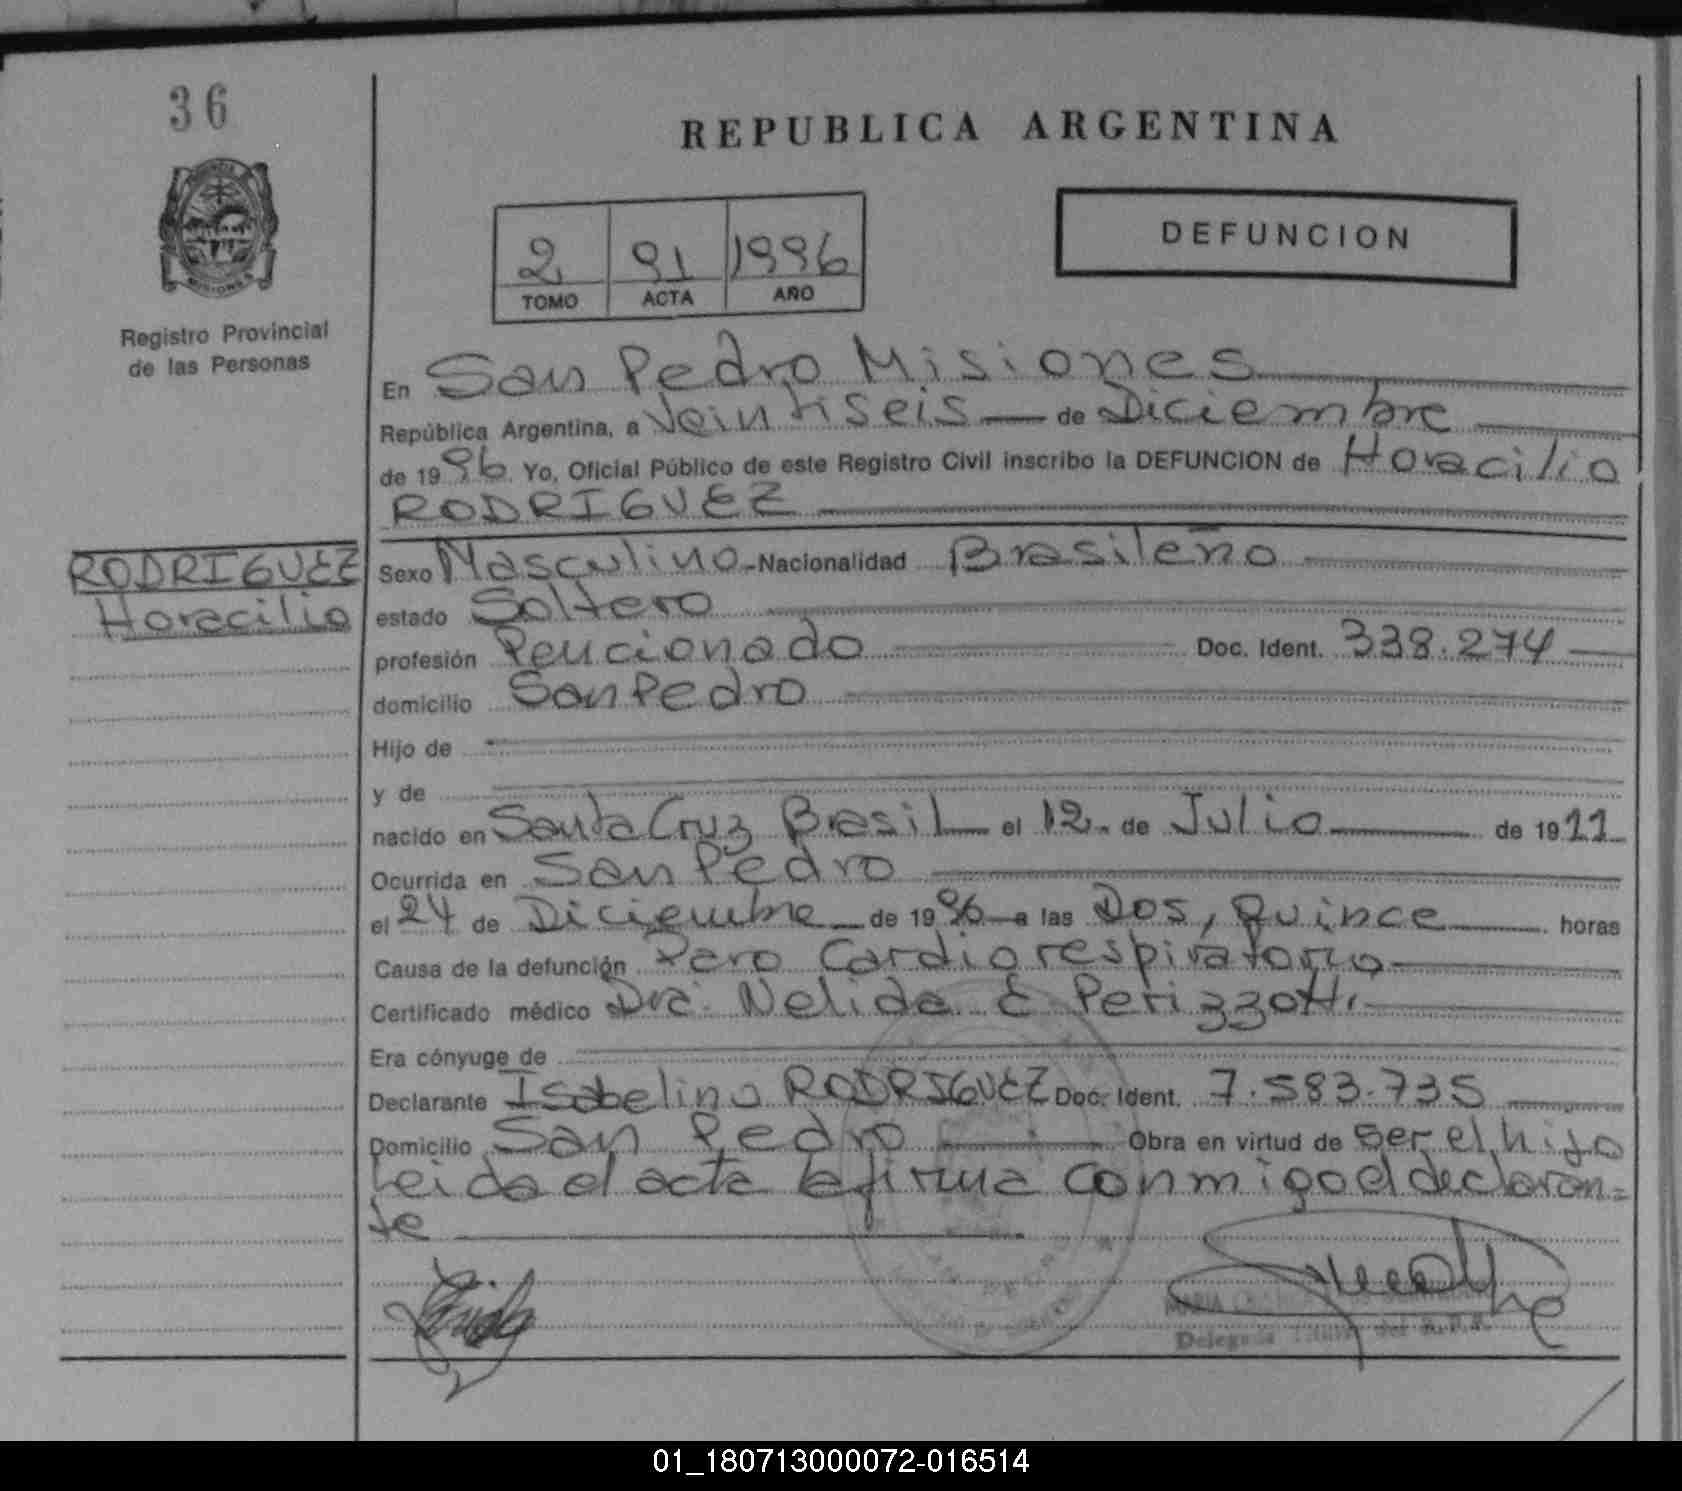 36
REPUBLICA ARGENTINA
DEFUNCION
2 91 1996
TOMO ACTA AÑO
MISIONES
Registro Provincial
de las Personas
En San Pedro Misiones
República Argentina, a Veintiseis de Diciembre
de 1996. Yo, Oficial Público de este Registro Civil inscribo la DEFUNCION de Horacilio
RODRIGUEZ
RODRIGUEZ
Horacilio
Sexo Masculino - Nacionalidad Brasileño
estado Soltero
profesión Pencionado Doc. Ident. 338.274
domicilio San Pedro
Hijo de
y de
nacido en Santa Cruz Brasil el 12 de Julio de 1911
Ocurrida en San Pedro
el 24 de Diciembre de 1996 a las Dos, Quince horas
Causa de la defunción Paro Cardiorespiratorio
Certificado médico Dra. Nelida E Perizzotti
Era cónyuge de
Declarante Isabelino RODRIGUEZ Doc. Ident. 7.583.735
Domicilio San Pedro Obra en virtud de ser el hijo
Leida el acta la firma conmigo el declaran=
te
MARIA
Delegada Titular del R.P.P.
01_180713000072-016514